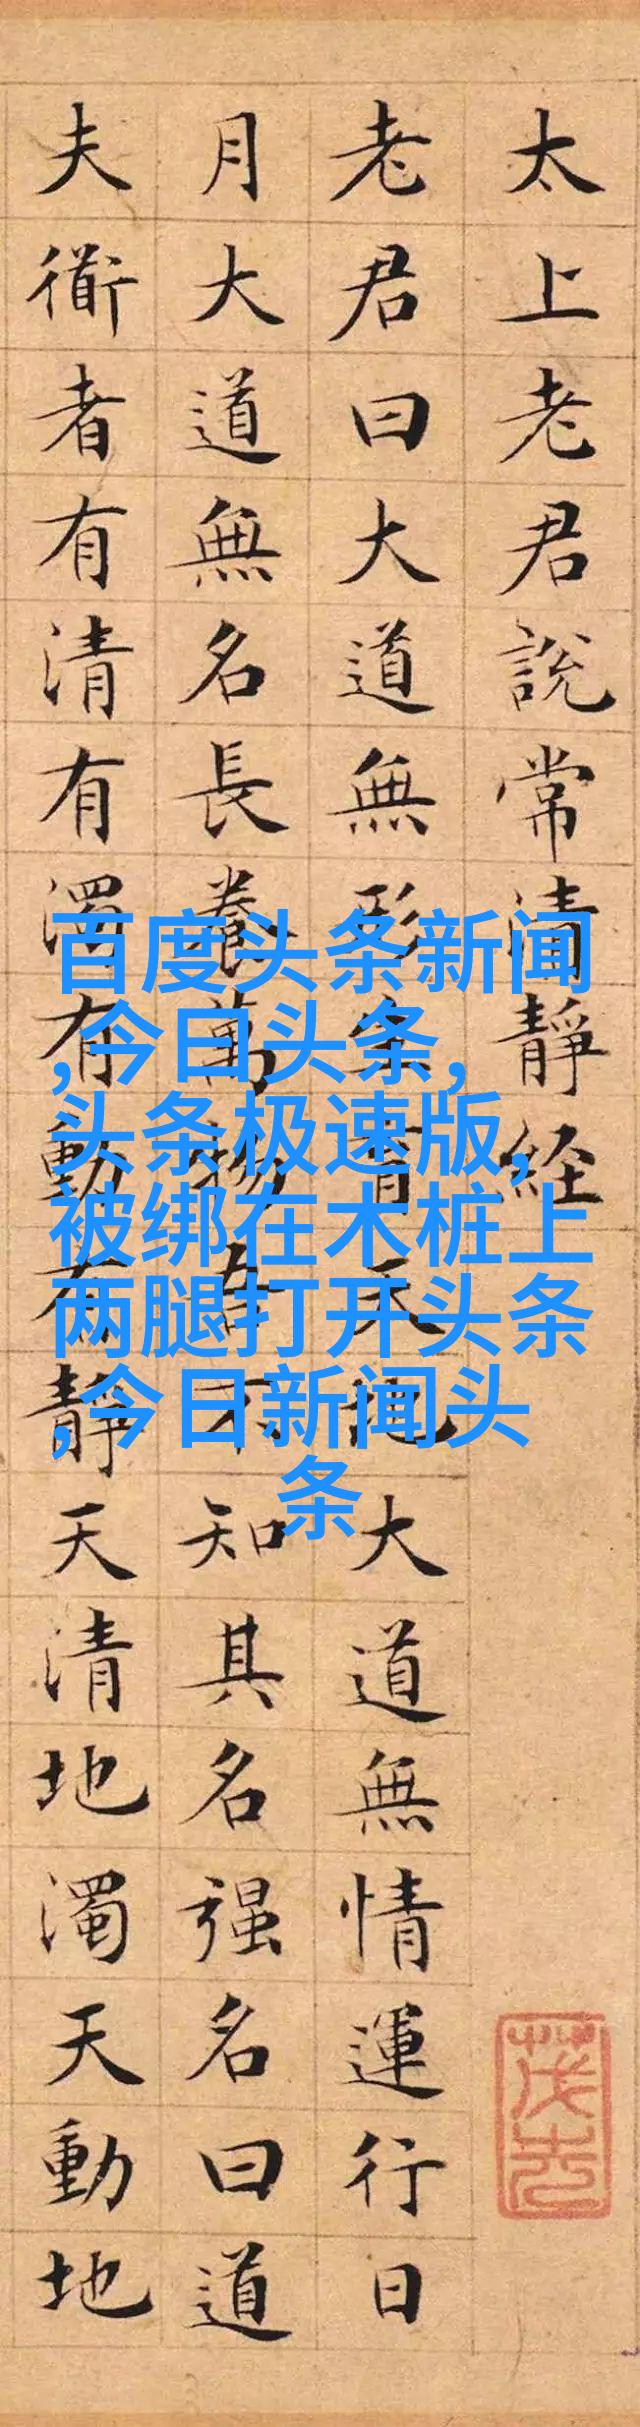 太上老君說常清靜経
老君曰大道無形生育天地大道無情運行日
月大道無名長養萬物吾不知其名强名曰道
夫衜者有清有濁有動有靜天清地濁天動地
百度头条新闻
,今日头条,
头条极速版,
被绑在木桩上
两腿打开头条
,今日新闻头
条